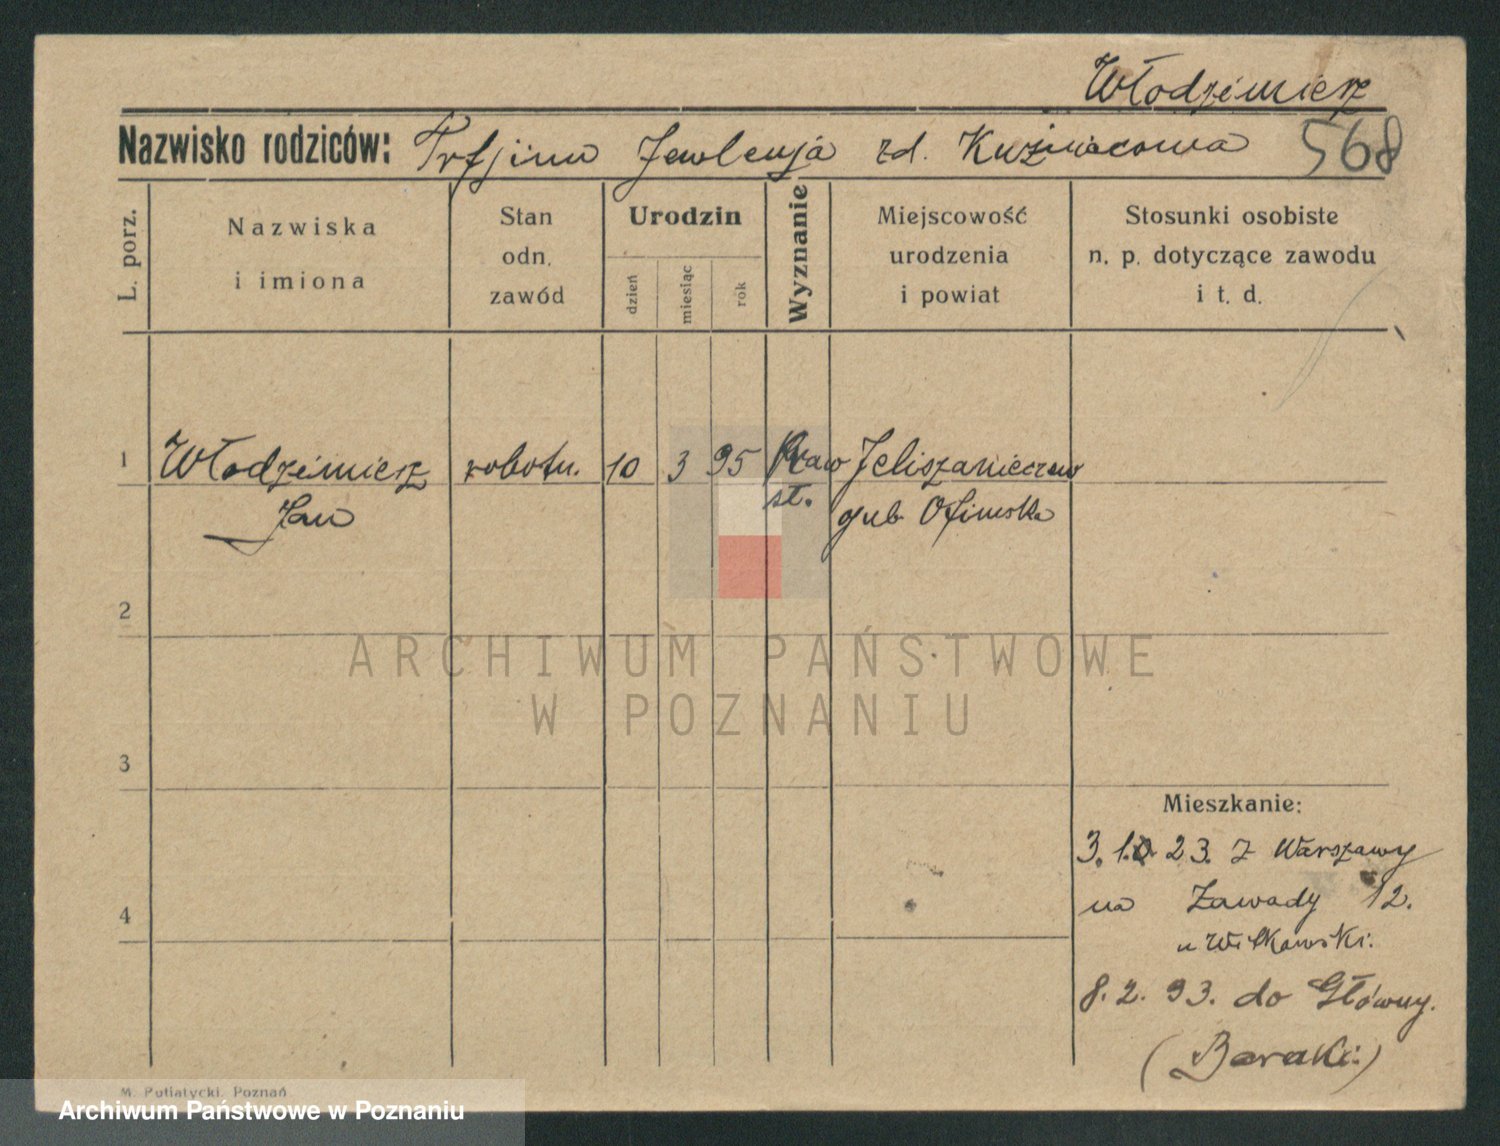 Włodzimierz
Nazwisko rodziców: Trfjinu Jewlenja zd. Kuźniecowa 568
L. porz.
Nazwiska
i imiona
Stan
odn.
zawód
Urodzin
dzień
miesiąc
rok
Wyznanie
Miejscowość
urodzenia
i powiat
Stosunki osobiste
n. p. dotyczące zawodu
i t. d.
1 Włodzimierz robotn. 10 3 95 Praw Jeliszawieczew
Jan st. gub Ofimska
2
ARCHIWUM PAŃSTWOWE
W POZNANIU
3
Mieszkanie:
3. 10 23. z Warszawy
na Zawady 12.
4
u Witkowski.
8. 2. 93. do Główny.
(Baraki)
M. Putiatycki, Poznań
Archiwum Państwowe w Poznaniu